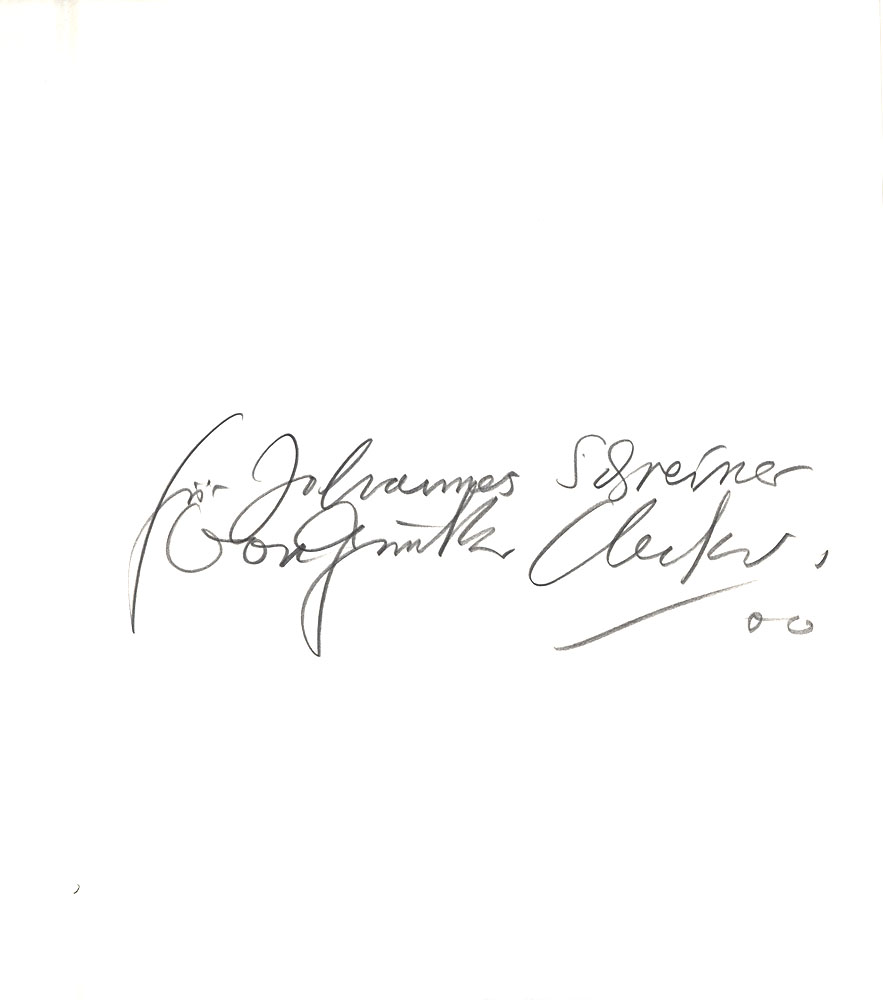 für Johannes Schreiner
von Günther Uecker,
00